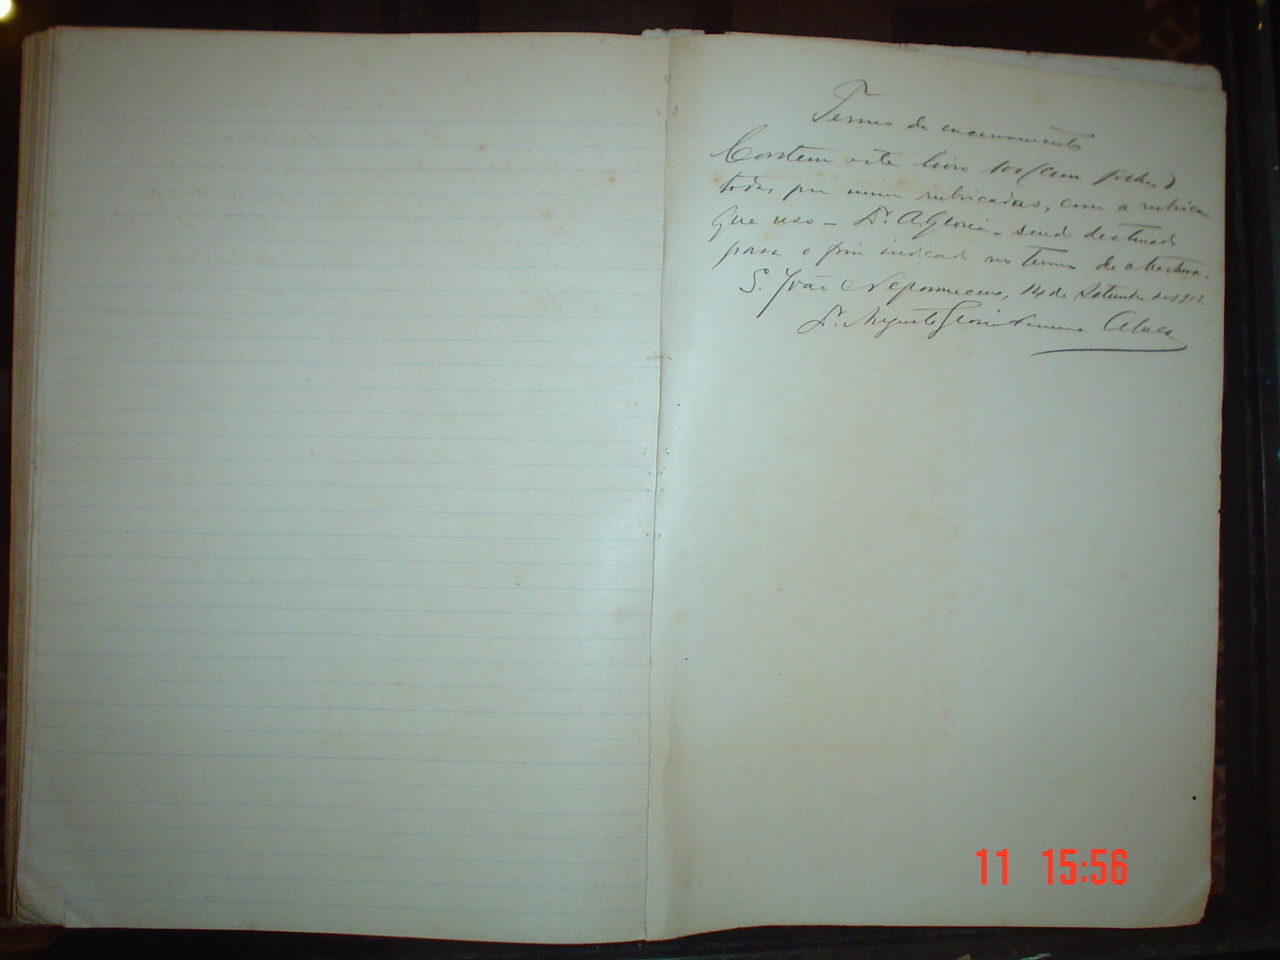 Termo de encerramento
Contem este livro 100 (cem folhas)
todas por mim rubricadas, com a rubrica
que uso - Dr. A. Gloria - sendo destinado
para o fim indicado no termo de abertura.
S. João Nepomuceno, 14 de Setembro de 1912
Dr. Augusto Gloria Alves
11 15:56